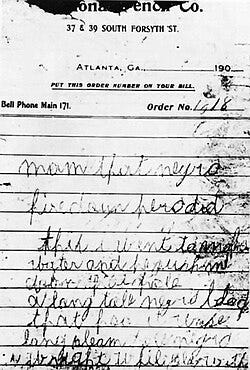 Pencil Co.
37 & 39 SOUTH FORSYTH ST.
ATLANTA, GA. 190
PUT THIS ORDER NUMBER ON YOUR BILL.
Bell Phone Main 171. Order No. 1018
mam that negro
hire down here did
this i went to make
water and he push me
down that hole
a long tall negro black
that hoo it wase
long sleam tall negro
i wright while play with